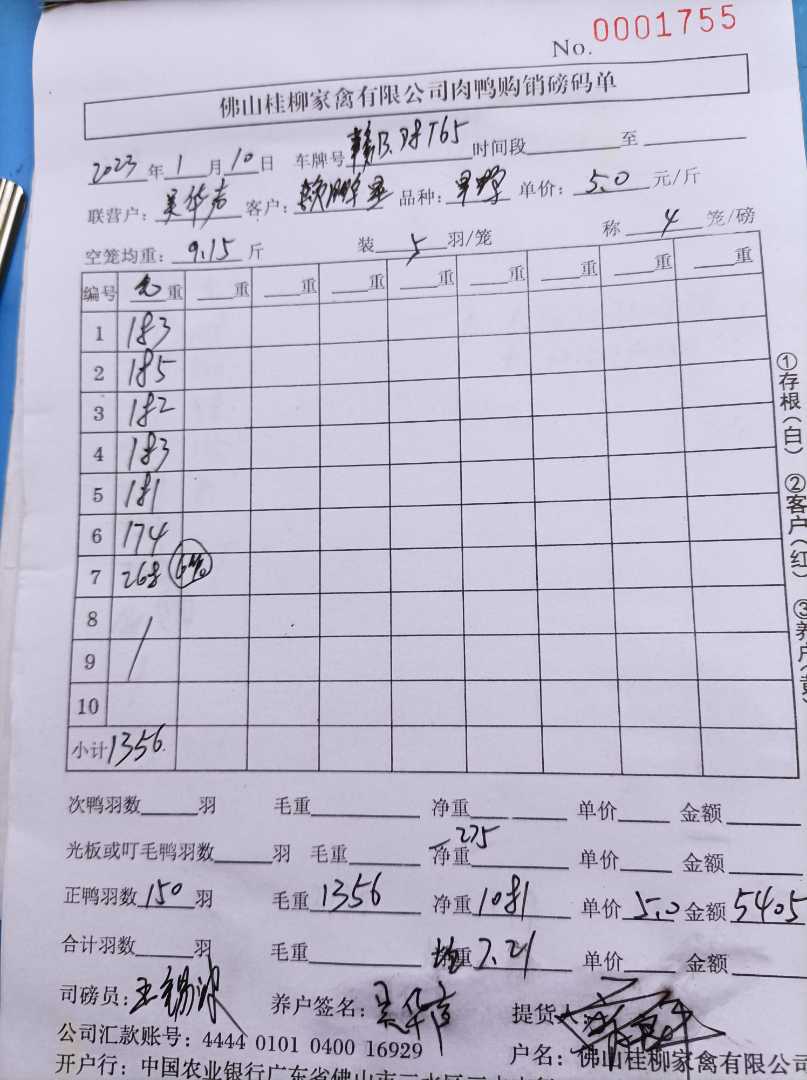 No. 0001755
佛山桂柳家禽有限公司肉鸭购销磅码单
2023年1月10日 车牌号 赣B.78T65 时间段 至
联营户: 吴华 客户: 赖 品种: 单价: 5.0 元/斤
空笼均重: 9.15 斤 装 5 羽/笼 称 4 笼/磅
编号 毛重 重 重 重 重 重 重 重 重
1 183
2 185
3 182
4 183
5 181
6 174
7 268
8
9
10
小计 1356
次鸭羽数 羽 毛重 净重 单价 金额
-275
光板或叮毛鸭羽数 羽 毛重 净重 单价 金额
正鸭羽数 150 羽 毛重 1356 净重 1081 单价 5.0 金额 5405
合计羽数 羽 毛重 均重 7.21 单价 金额
司磅员: 王锡 养户签名: 吴华 提货人:
公司汇款账号: 4444 0101 0400 16929 户名: 佛山桂柳家禽有限公司
开户行: 中国农业银行广东省佛山市三水区三
①存根(白) ②客户(红) ③养户(黄)